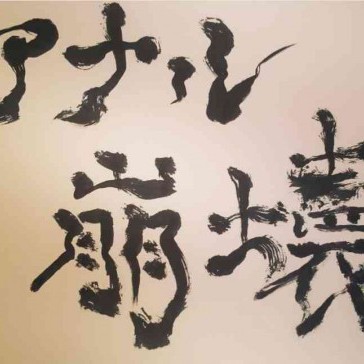 アナル
崩壊